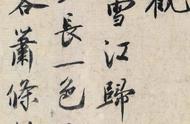 觀
雪江歸
長一色
客蕭條